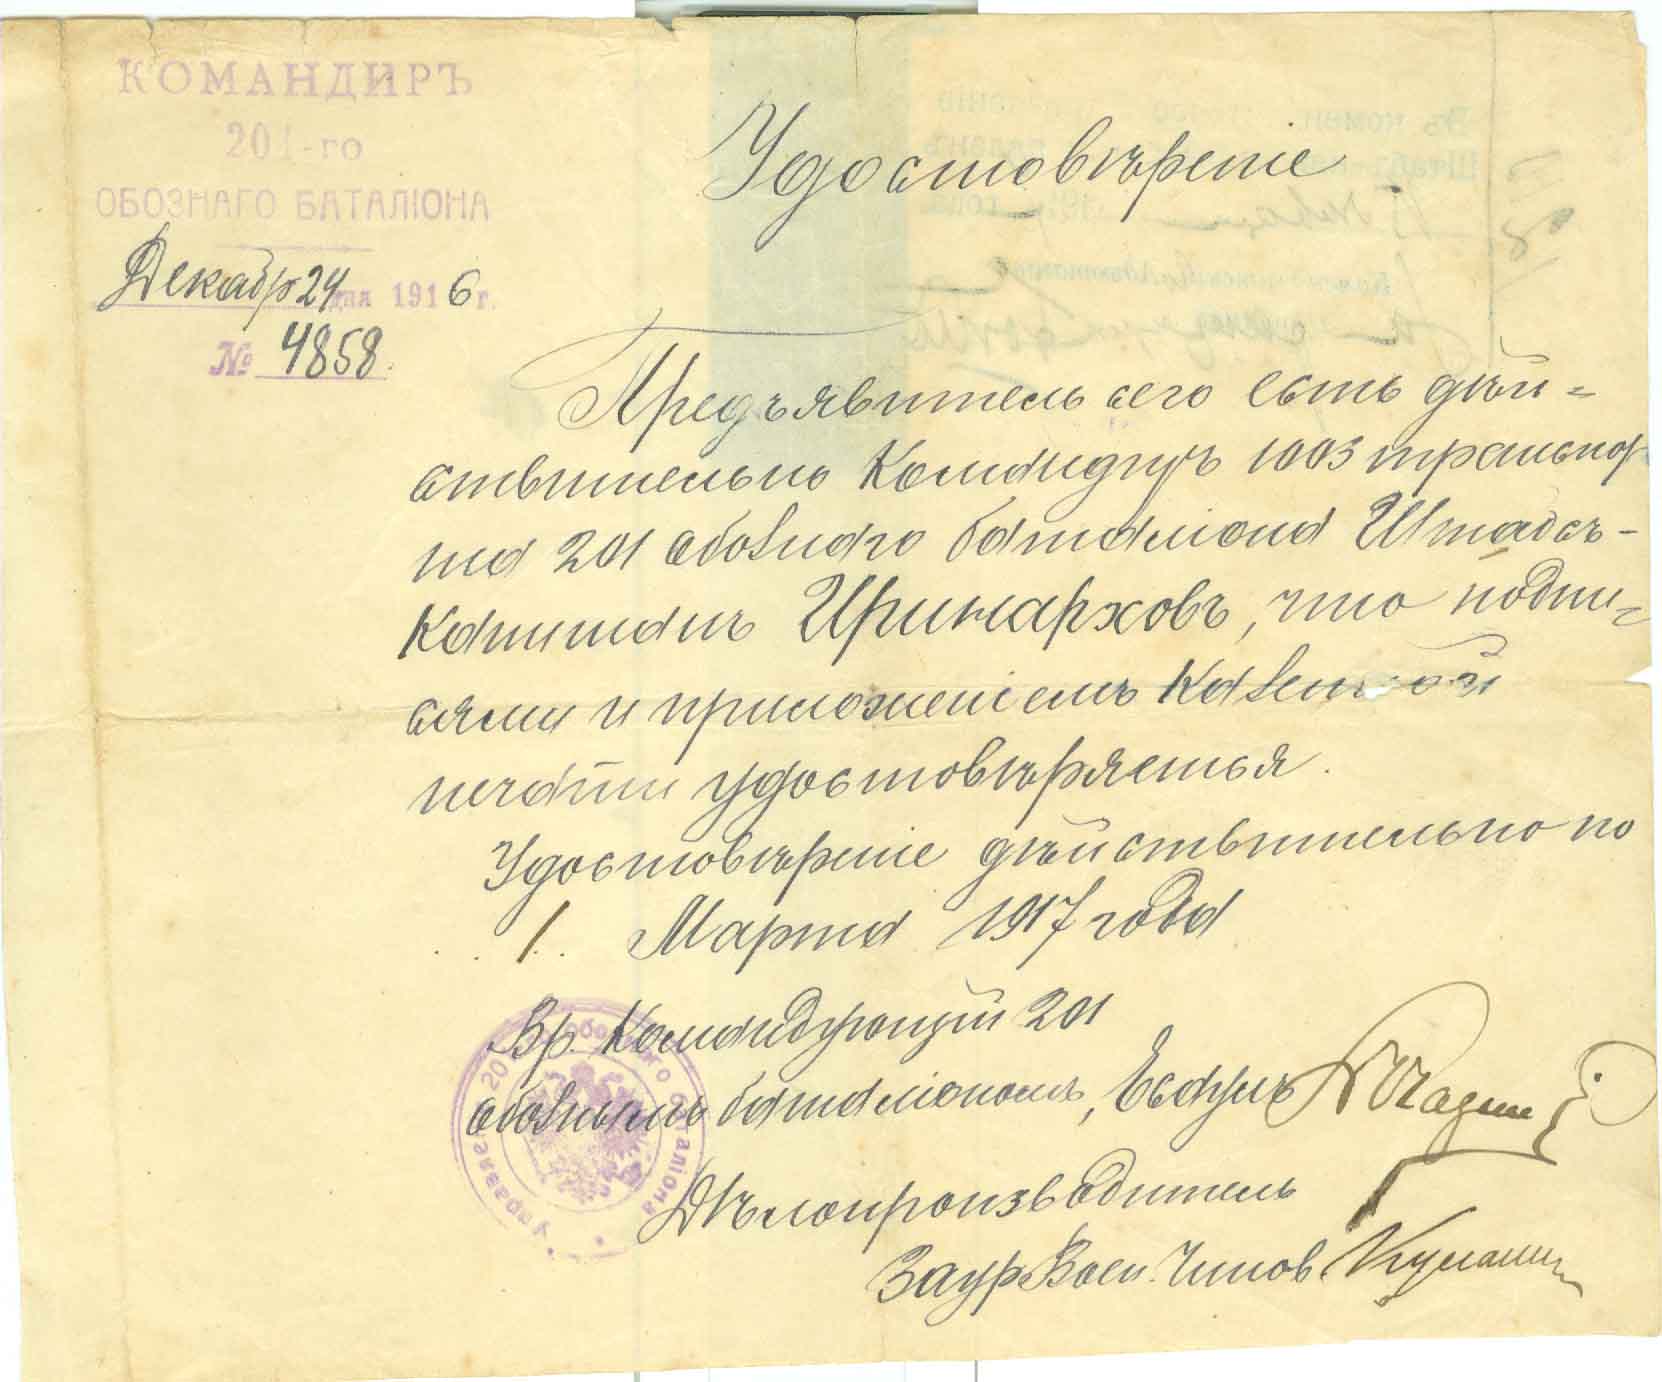 КОМАНДИРЪ
201-го
ОБОЗНАГО БАТАЛІОНА
Декабр 24 дня 1916 г.
№ 4858.
Удостовѣреніе
Предъявитель сего есть дѣй=
ствительно Командиръ 1003 транспор
та 201 обознаго баталіона Штабсъ-
Капитанъ Иринарховъ, что подпи=
сями и приложеніемъ казенной
печати удостовѣряется.
Удостовѣреніе дѣйствительно по
1. Марта 1917 года
Вр. Командующій 201
обознымъ баталіономъ, Есаулъ
Дѣлопроизводитель
Заур. Воен. Чинов.
Управлен 201 обознаго баталіона